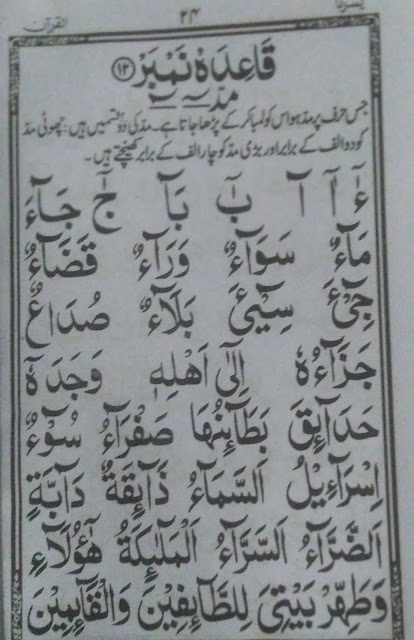 یسرنا ۲۴ القرآن
قَاعِدَہ نَمبَر ۱۳
مدّ
جس حرف پر مد ہو اس کو لمبا کر کے پڑھا جاتا ہے۔ مد کی دو قسمیں ہیں: چھوٹی مد
کو دو الف کے برابر اور بڑی مد کو چار الف کے برابر کھینچتے ہیں۔
جَآءَ
مَآءٌ سَوَآءٌ وَرَآءُ قَضَآءٌ
جِیْٓءَ سِیْٓئَ بَلَآءٌ صُدَاعٌ
جَزَآءُهٗ اِلٰٓى اَهْلِهٖ وَجَدَهٗ
حَدَآئِقَ بَطَآئِنُهَا صَفْرَآءُ سُوْٓءٌ
اِسْرَآءِيْلُ اَلسَّمَآءُ ذَآئِقَةُ دَآبَّةٍ
اَلضَّرَّآءُ اَلسَّرَّآءُ اَلْمَلٰٓئِكَةُ هٰٓؤُلَآءِ
وَطَهِّرْ بَيْتِيَ لِلطَّآئِفِيْنَ وَالْقَآئِمِيْنَ